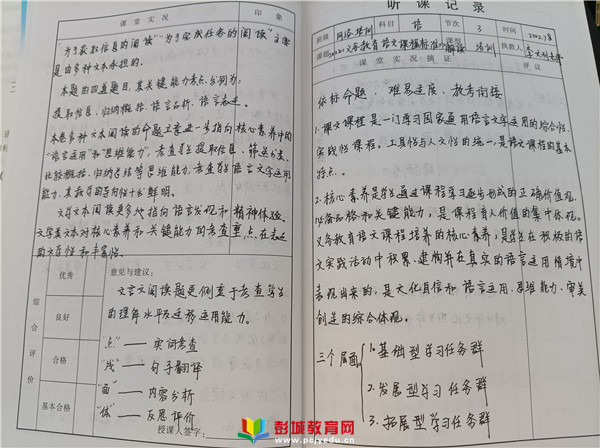 课堂实况 印象
"为了获取信息的阅读""为了完成任务的阅读"主要
是由多种文本承担的。
本题的四道题目,其关键能力考点分别为:
提取信息、归纳概括、语言品析、语言表达。
本卷多种文本阅读的命题立意进一步指向核心素养中的
"语言运用"和"思维能力",考查学生提取信息、筛选分类、
比较概括、归纳总结等思维能力,考查学生语言文字运用
能力,其教育的导向性十分鲜明。
文学文本阅读更多地指向语言发现和精神体验。
文学类文本对核心素养和关键能力的考查重点在表达
的交互性和丰富性。
综合评价
优秀
良好
合格
基本合格
意见与建议:
文言文阅读题更侧重于考查学生
的理解水平及迁移运用能力。
"点"——实词考查
"线"——句子翻译
"面"——内容分析
"体"——反思评价
授课人签字:
听课记录
班级 网络培训 科目 语 节次 3 时间 2022.7.8
课题 2022义务教育语文课程标准 解读 课型 培训 执教人
课堂实况摘证 评议
依标命题、难易适度、教考衔接
1.语文课程是一门学习国家通用语言文字运用的综合性、
实践性课程。工具性与人文性的统一,是语文课程的基本
特点。
2.核心素养是学生通过课程学习逐步形成的正确价值观、
必备品格和关键能力,是课程育人价值的集中体现。
义务教育语文课程培养的核心素养,是学生在积极的语
文实践活动中积累、建构并在真实的语言运用情境中
表现出来的,是文化自信和语言运用、思维能力、审美
创造的综合体现。
三个层面
1.基础型学习任务群
2.发展型学习任务群
3.拓展型学习任务群
彭城教育网
www.pcjyedu.cn